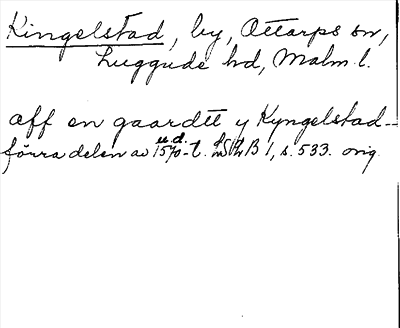 Kingelstad, by, Ottarps sn,
Luggude hd, Malm. l.
aff en gaardtt y Kyngelstad –
u.d.
förra delen av 1570-t. LSkB 1, s. 533. orig.